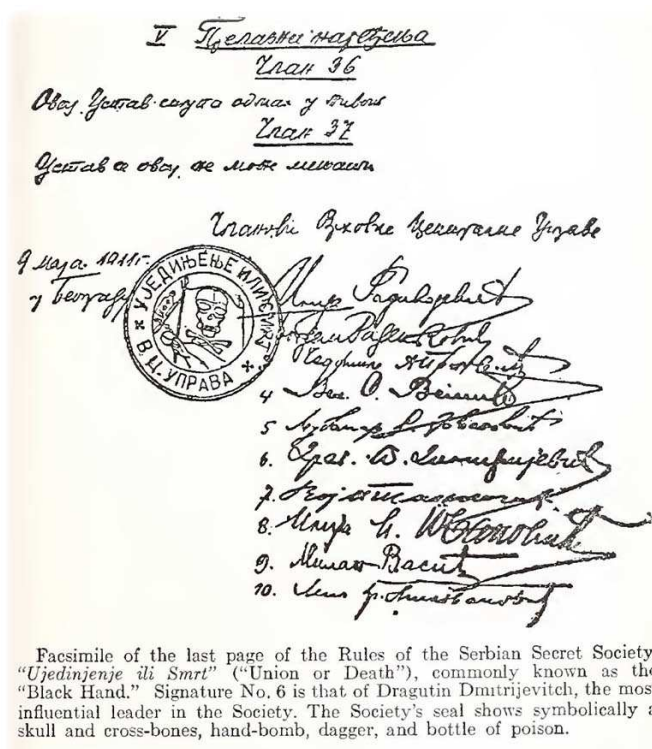 V Прелазна наређења
Члан 36
Овај Устав ступа одмах у живот
Члан 37
Устав се овај не може мењати
Чланови Врховне Централне Управе
9 маја 1911 г.
у Београду
УЈЕДИЊЕЊЕ ИЛИ СМРТ
В.Ц. УПРАВА
Илија Радивојевић
4
5
6. Драг. Т. Димитријевић
7.
8. Илија М. Јовановић
9. Милан Васић
10.
Facsimile of the last page of the Rules of the Serbian Secret Society
"Ujedinjenje ili Smrt" ("Union or Death"), commonly known as the
"Black Hand." Signature No. 6 is that of Dragutin Dmitrijevitch, the mos
influential leader in the Society. The Society's seal shows symbolically a
skull and cross-bones, hand-bomb, dagger, and bottle of poison.